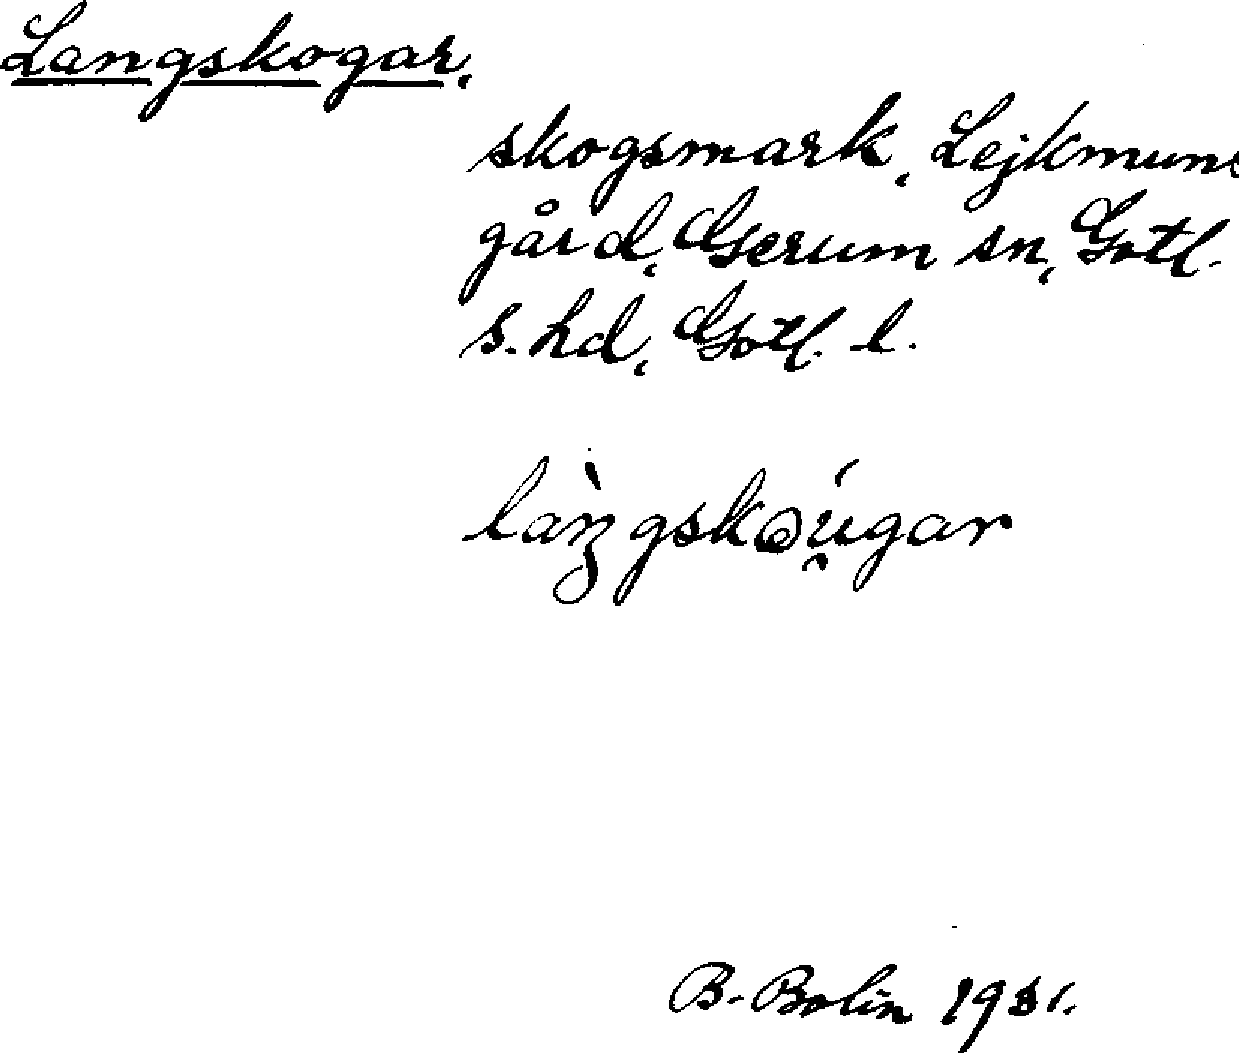 Langskogar,
skogsmark, Lejkmuns
gård, Gerum sn, Gotl.
s. hd, Gotl. l.
B. Bolin 1931.